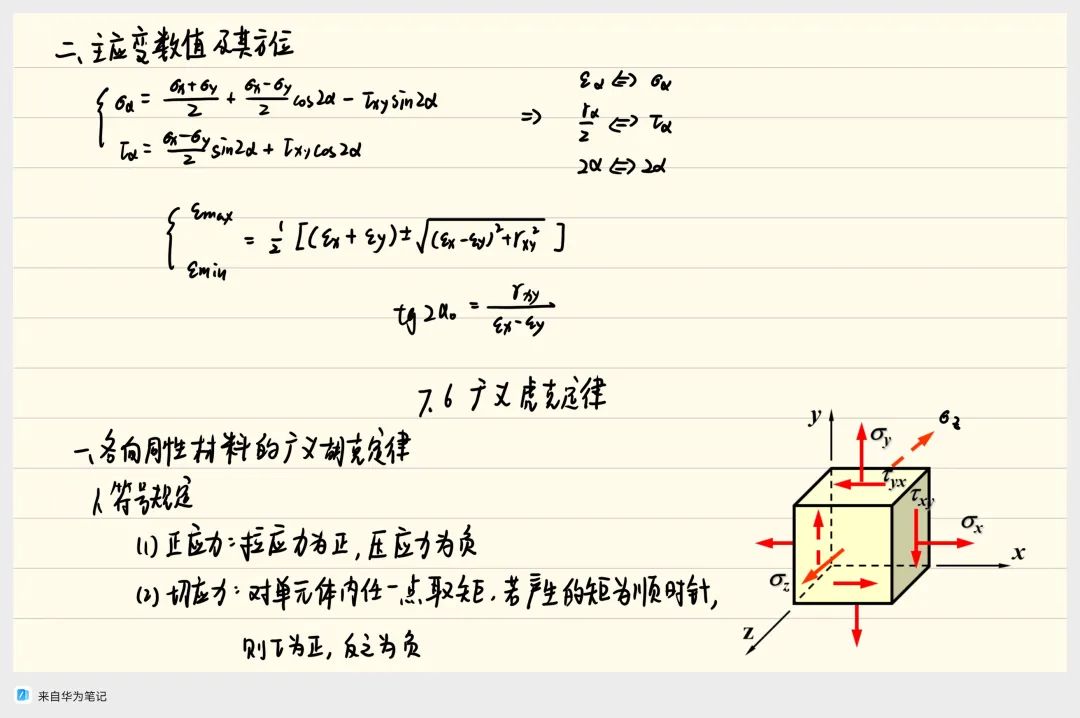 二、主应变数值及其方位
σα = (σx+σy)/2 + (σx-σy)/2 cos2α - τxy sin2α
τα = (σx-σy)/2 sin2α + τxy cos2α
⇒
εα ⇔ σα
γα/2 ⇔ τα
2α ⇔ 2α
εmax
εmin
= 1/2 [(εx + εy) ± √((εx-εy)²+γxy²) ]
tg2α₀ = γxy/(εx-εy)
7.6 广义虎克定律
一、各向同性材料的广义胡克定律
1、符号规定
(1) 正应力：拉应力为正，压应力为负
(2) 切应力：对单元体内任一点取矩，若产生的矩为顺时针，
则τ为正，反之为负
y
σy
σz
τyx
τxy
σx
x
σz
z
来自华为笔记